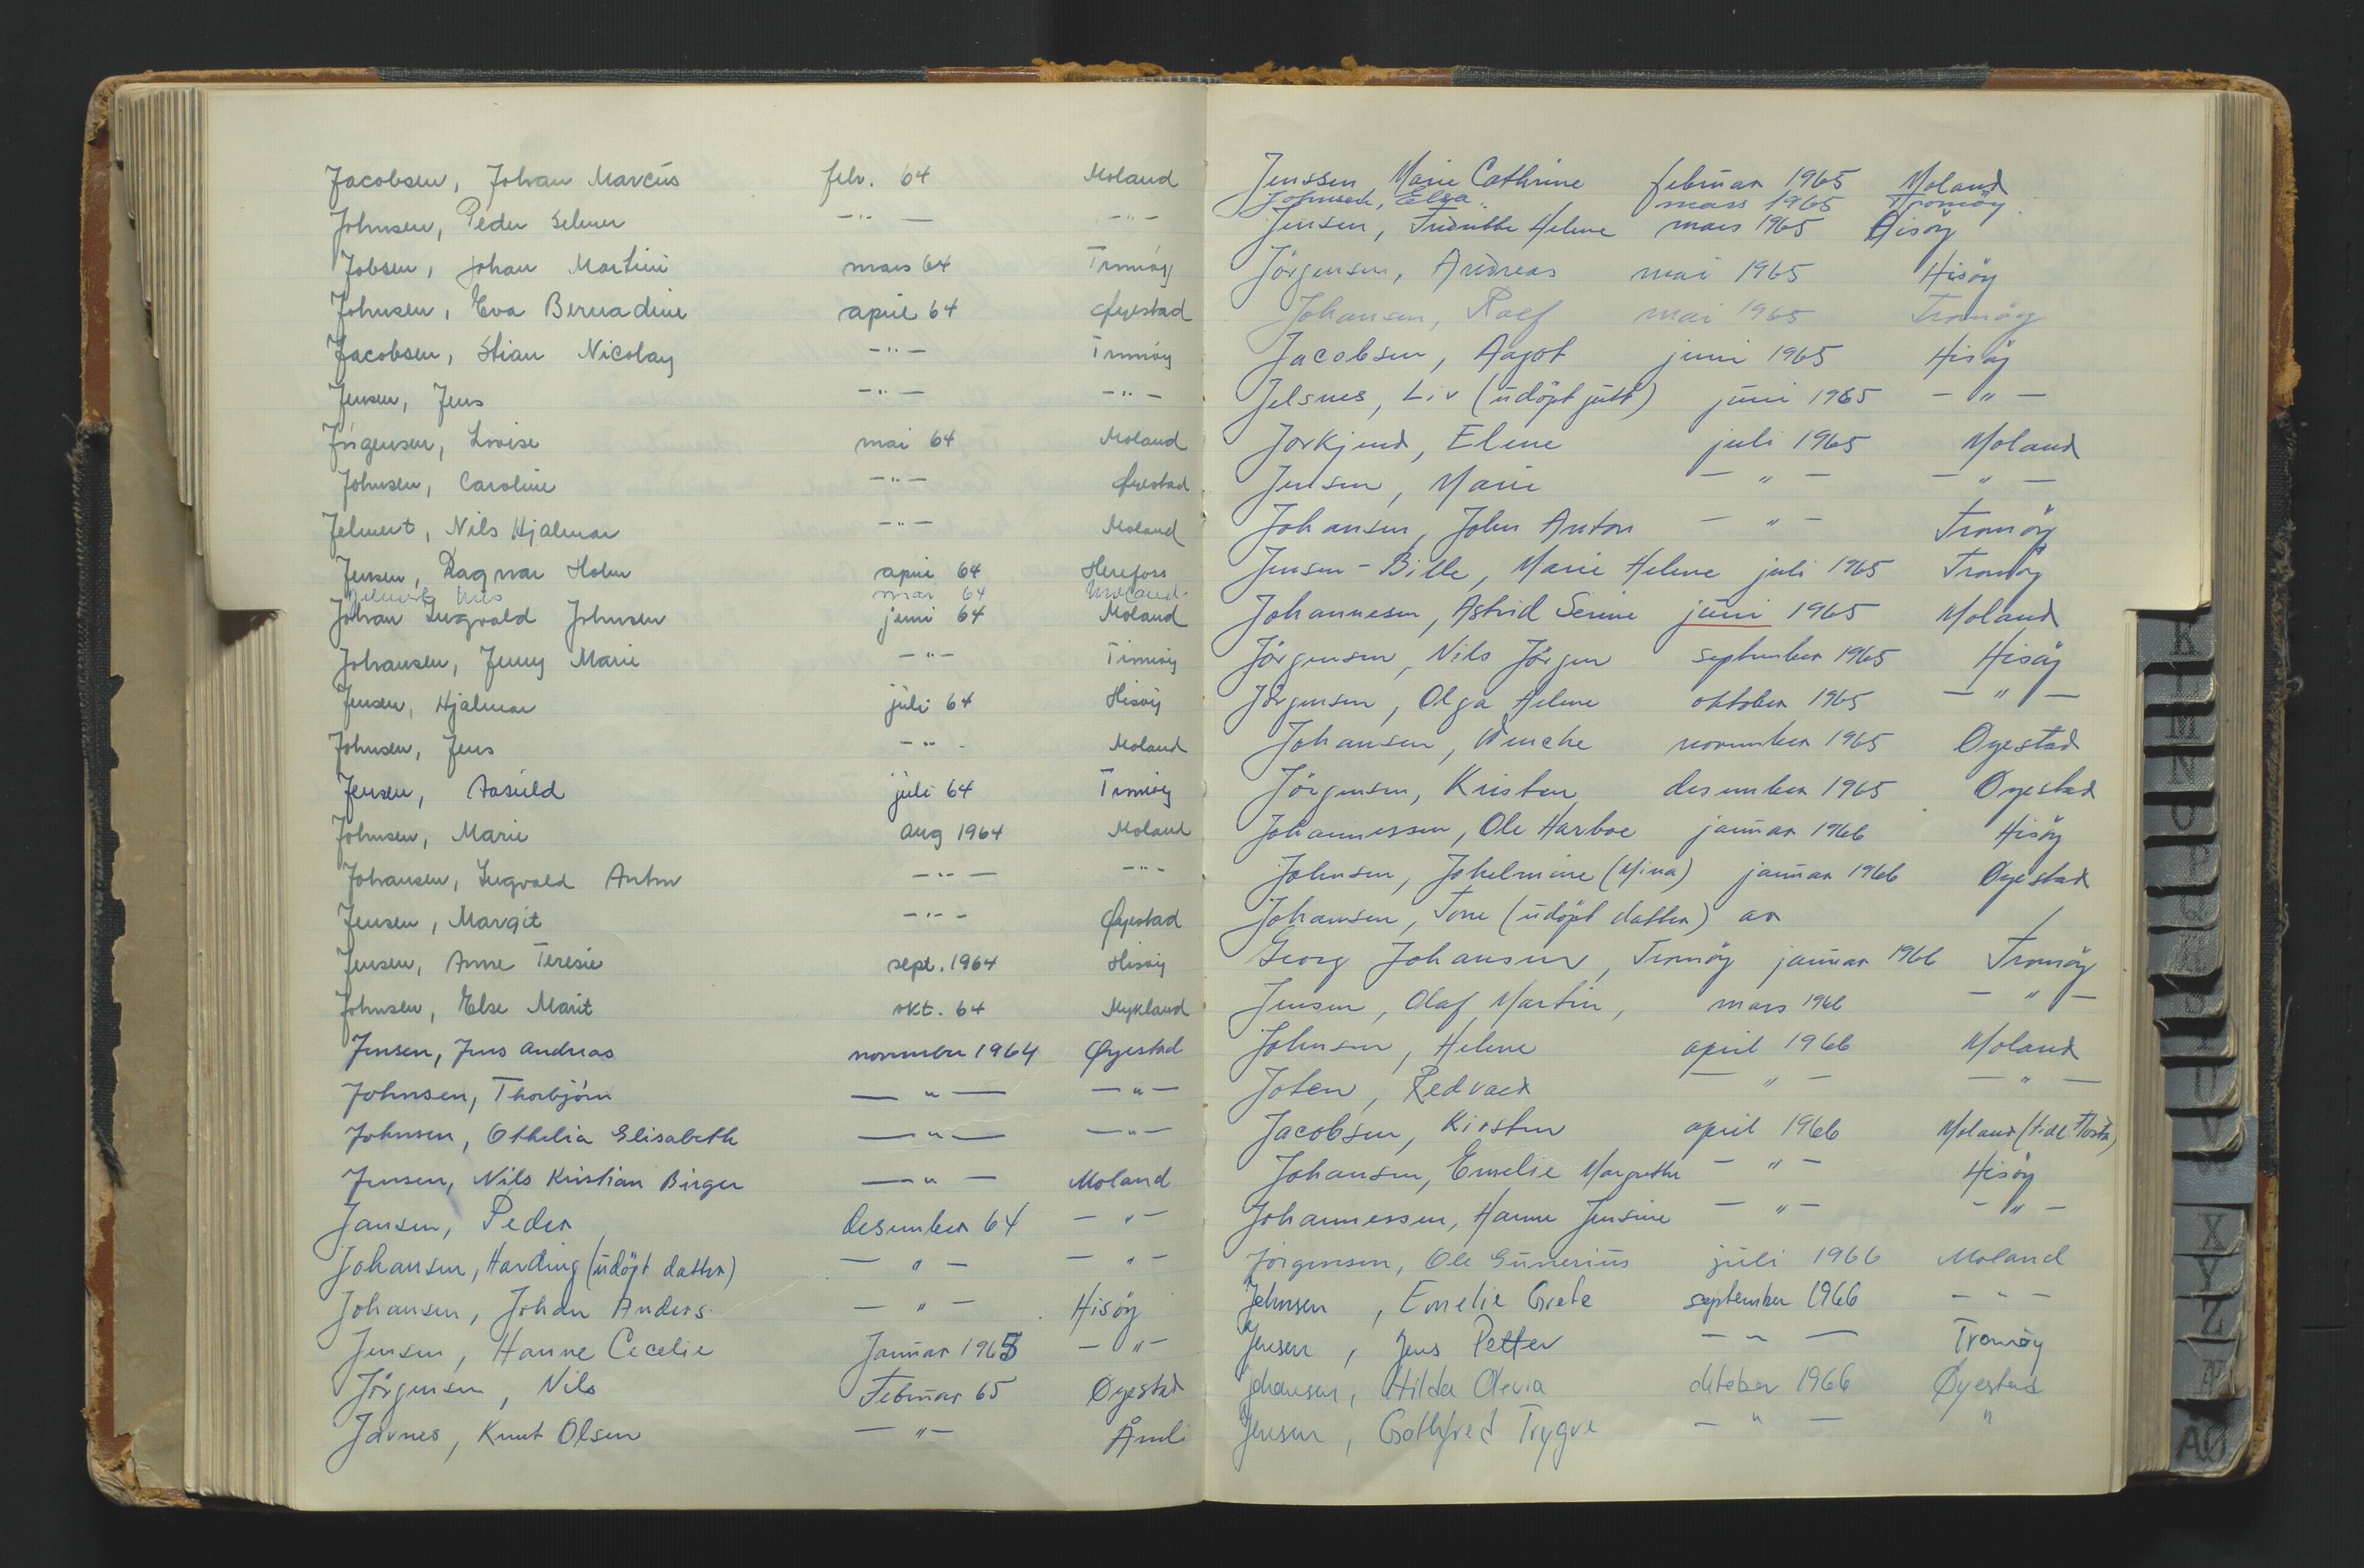 Jacobsen, Johan Marcus febr. 64 Moland
Johnsen, Peder Selmer —"— —"—
Jobsen, Johan Martini mars 64 Tromøy
Johnsen, Eva Bernadine april 64 Øyestad
Jacobsen, Stian Nicolay —"— Tromøy
Jensen, Jens —"— —"—
Jörgensen, Lovise mai 64 Moland
Johnsen, Caroline —"— Øyestad
Jelmert, Nils Hjalmar —"— Moland
Jensen, Ragnar Holm april 64 Herefoss
Jelmert, Nils mai 64 Moland
Johan Ingvald Johnsen juni 64 Moland
Johansen, Jenny Marie —"— Tromøy
Jensen, Hjalmar juli 64 Hisøy
Johnsen, Jens —"— Moland
Jensen, Aasuld juli 64 Tromøy
Johnsen, Marie aug 1964 Moland
Johansen, Ingvald Anton —"— —"—
Jensen, Margit —"— Øyestad
Jensen, Anne Teresie sept. 1964 Hisøy
Johnsen, Else Marit okt. 64 Mykland
Jensen, Jens Andreas november 1964 Øyestad
Johnsen, Thorbjörn —"— —"—
Johnsen, Othelia Elisabeth —"— —"—
Jensen, Nils Kristian Birger —"— Moland
Jansen, Peder desember 64 —"—
Johansen, Harding (udöpt datter) —"— —"—
Johansen, Johan Anders —"— Hisöy
Jensen, Hanne Cecelie Januar 1965 —"—
Jörgensen, Nils Februar 65 Øyestad
Javnes, Knut Olsen —"— Åmli
Jenssen, Marie Cathrine februar 1965 Moland
Johnsen, Elsa mars 1965 Tromöy
Jensen, Fredrikke Helene mars 1965 Hisöy
Jörgensen, Andreas mai 1965 Hisöy
Johansen, Rolf mai 1965 Tromöy
Jacobsen, Aagot juni 1965 Hisöy
Jelsnes, Liv (udöpt jutt) juni 1965 —"—
Jorkjend, Elene juli 1965 Moland
Jensen, Marie —"— —"—
Johansen, John Anton —"— Tromöy
Jensen-Bille, Marie Helene juli 1965 Tromöy
Johannesen, Astrid Serine juni 1965 Moland
Jörgensen, Nils Jörgen september 1965 Hisöy
Jörgensen, Olga Helene oktober 1965 —"—
Johansen, Wenche november 1965 Øyestad
Jörgensen, Kristen desember 1965 Øyestad
Johannessen, Ole Harboe januar 1966 Hisöy
Johnsen, Johelmine (Mina) januar 1966 Øyestad
Johansen, Tone (udöpt datter) av
Georg Johansen, Tromöy januar 1966 Tromöy
Jensen, Olaf Martin, mars 1966 —"—
Johnsen, Helene april 1966 Moland
Joten, Redvald —"— —"—
Jacobsen, Kirsten april 1966 Moland (t.dl. Flosta)
Johansen, Emelie Margrethe —"— Hisöy
Johannessen, Hanne Jensine —"— —"—
Jörgensen, Ole Gunerius juli 1966 Moland
Johnsen, Emelie Grete september 1966 —"—
Jensen, Jens Petter —"— Tromøy
Johansen, Hilda Olevia oktober 1966 Øyestad
Jensen, Gothfred Trygve —"— "
K
L
M
N
O
P
X
Y
Z
Æ
AØ